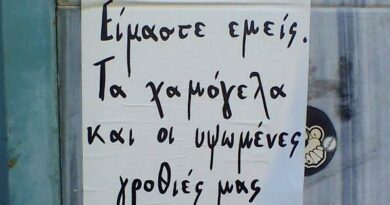 Είμαστε εμείς.
Τα χαμόγελα
και οι υψωμένες
γροθιές μας